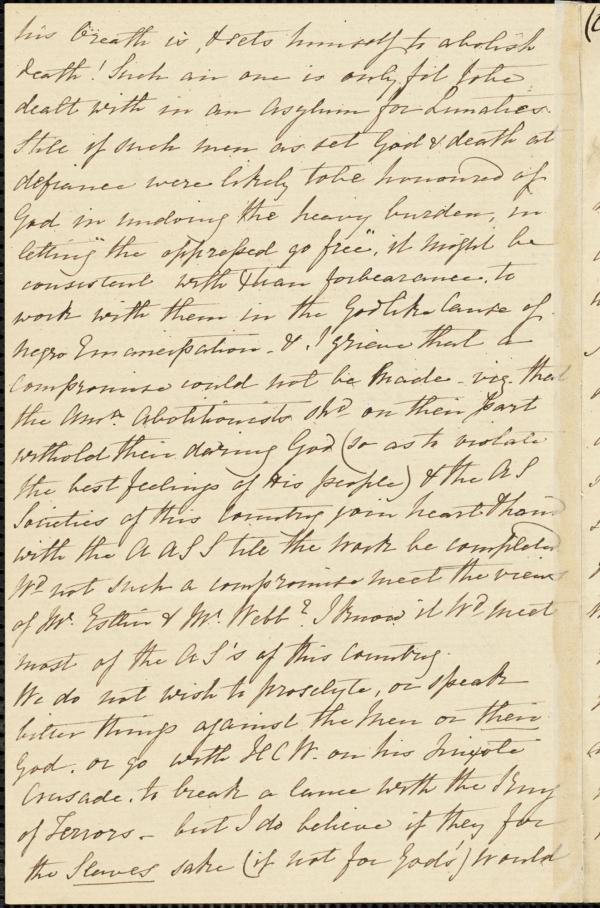 his breath is, & sets himself to abolish
death! Such an one is only fit to be
dealt with in an Asylum for Lunatics.
Still if such men as set God & death at
defiance were likely to be honoured of
God in undoing "the heavy burden, in
letting "the oppressed go free", it might be
consistent with Xtian forbearance, to
work with them in the Godlike Cause of
Negro Emancipation - & I grieve that a
Compromise could not be made - viz. that
the Amn. Abolitionists shd. on their part
withold their daring God (so as to violate
the best feelings of His people) & the AS
Societies of this Country join heart & hand
with the A A S S till the work be completed
Wd. not such a compromise meet the views
of Mr. Estlin & Mr. Webb? I know it Wd. meet
most of the AS's of this Country.
We do not wish to proselyte, or speak
bitter things against the Men or their
God. or go with H C W. on his
Crusade, to break a lance with the King
of Terrors - but I do believe if they for
the Slaves sake (if not for God's) would
(